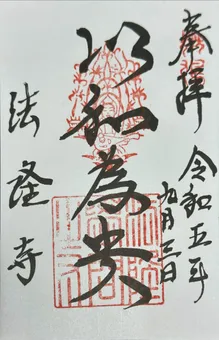 奉拝
令和五年
九月三日
以和為貴
法隆寺